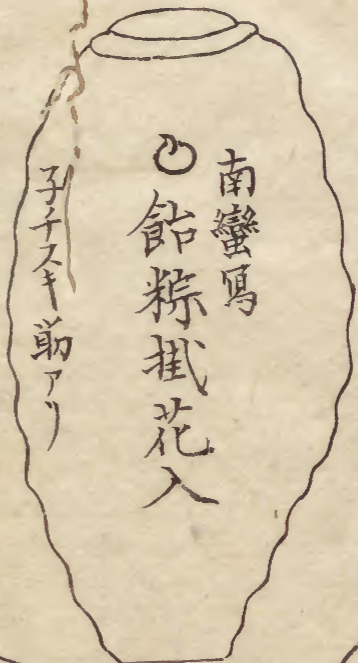 南蠻寫
飴粽掛花入
子チスキ筋アリ